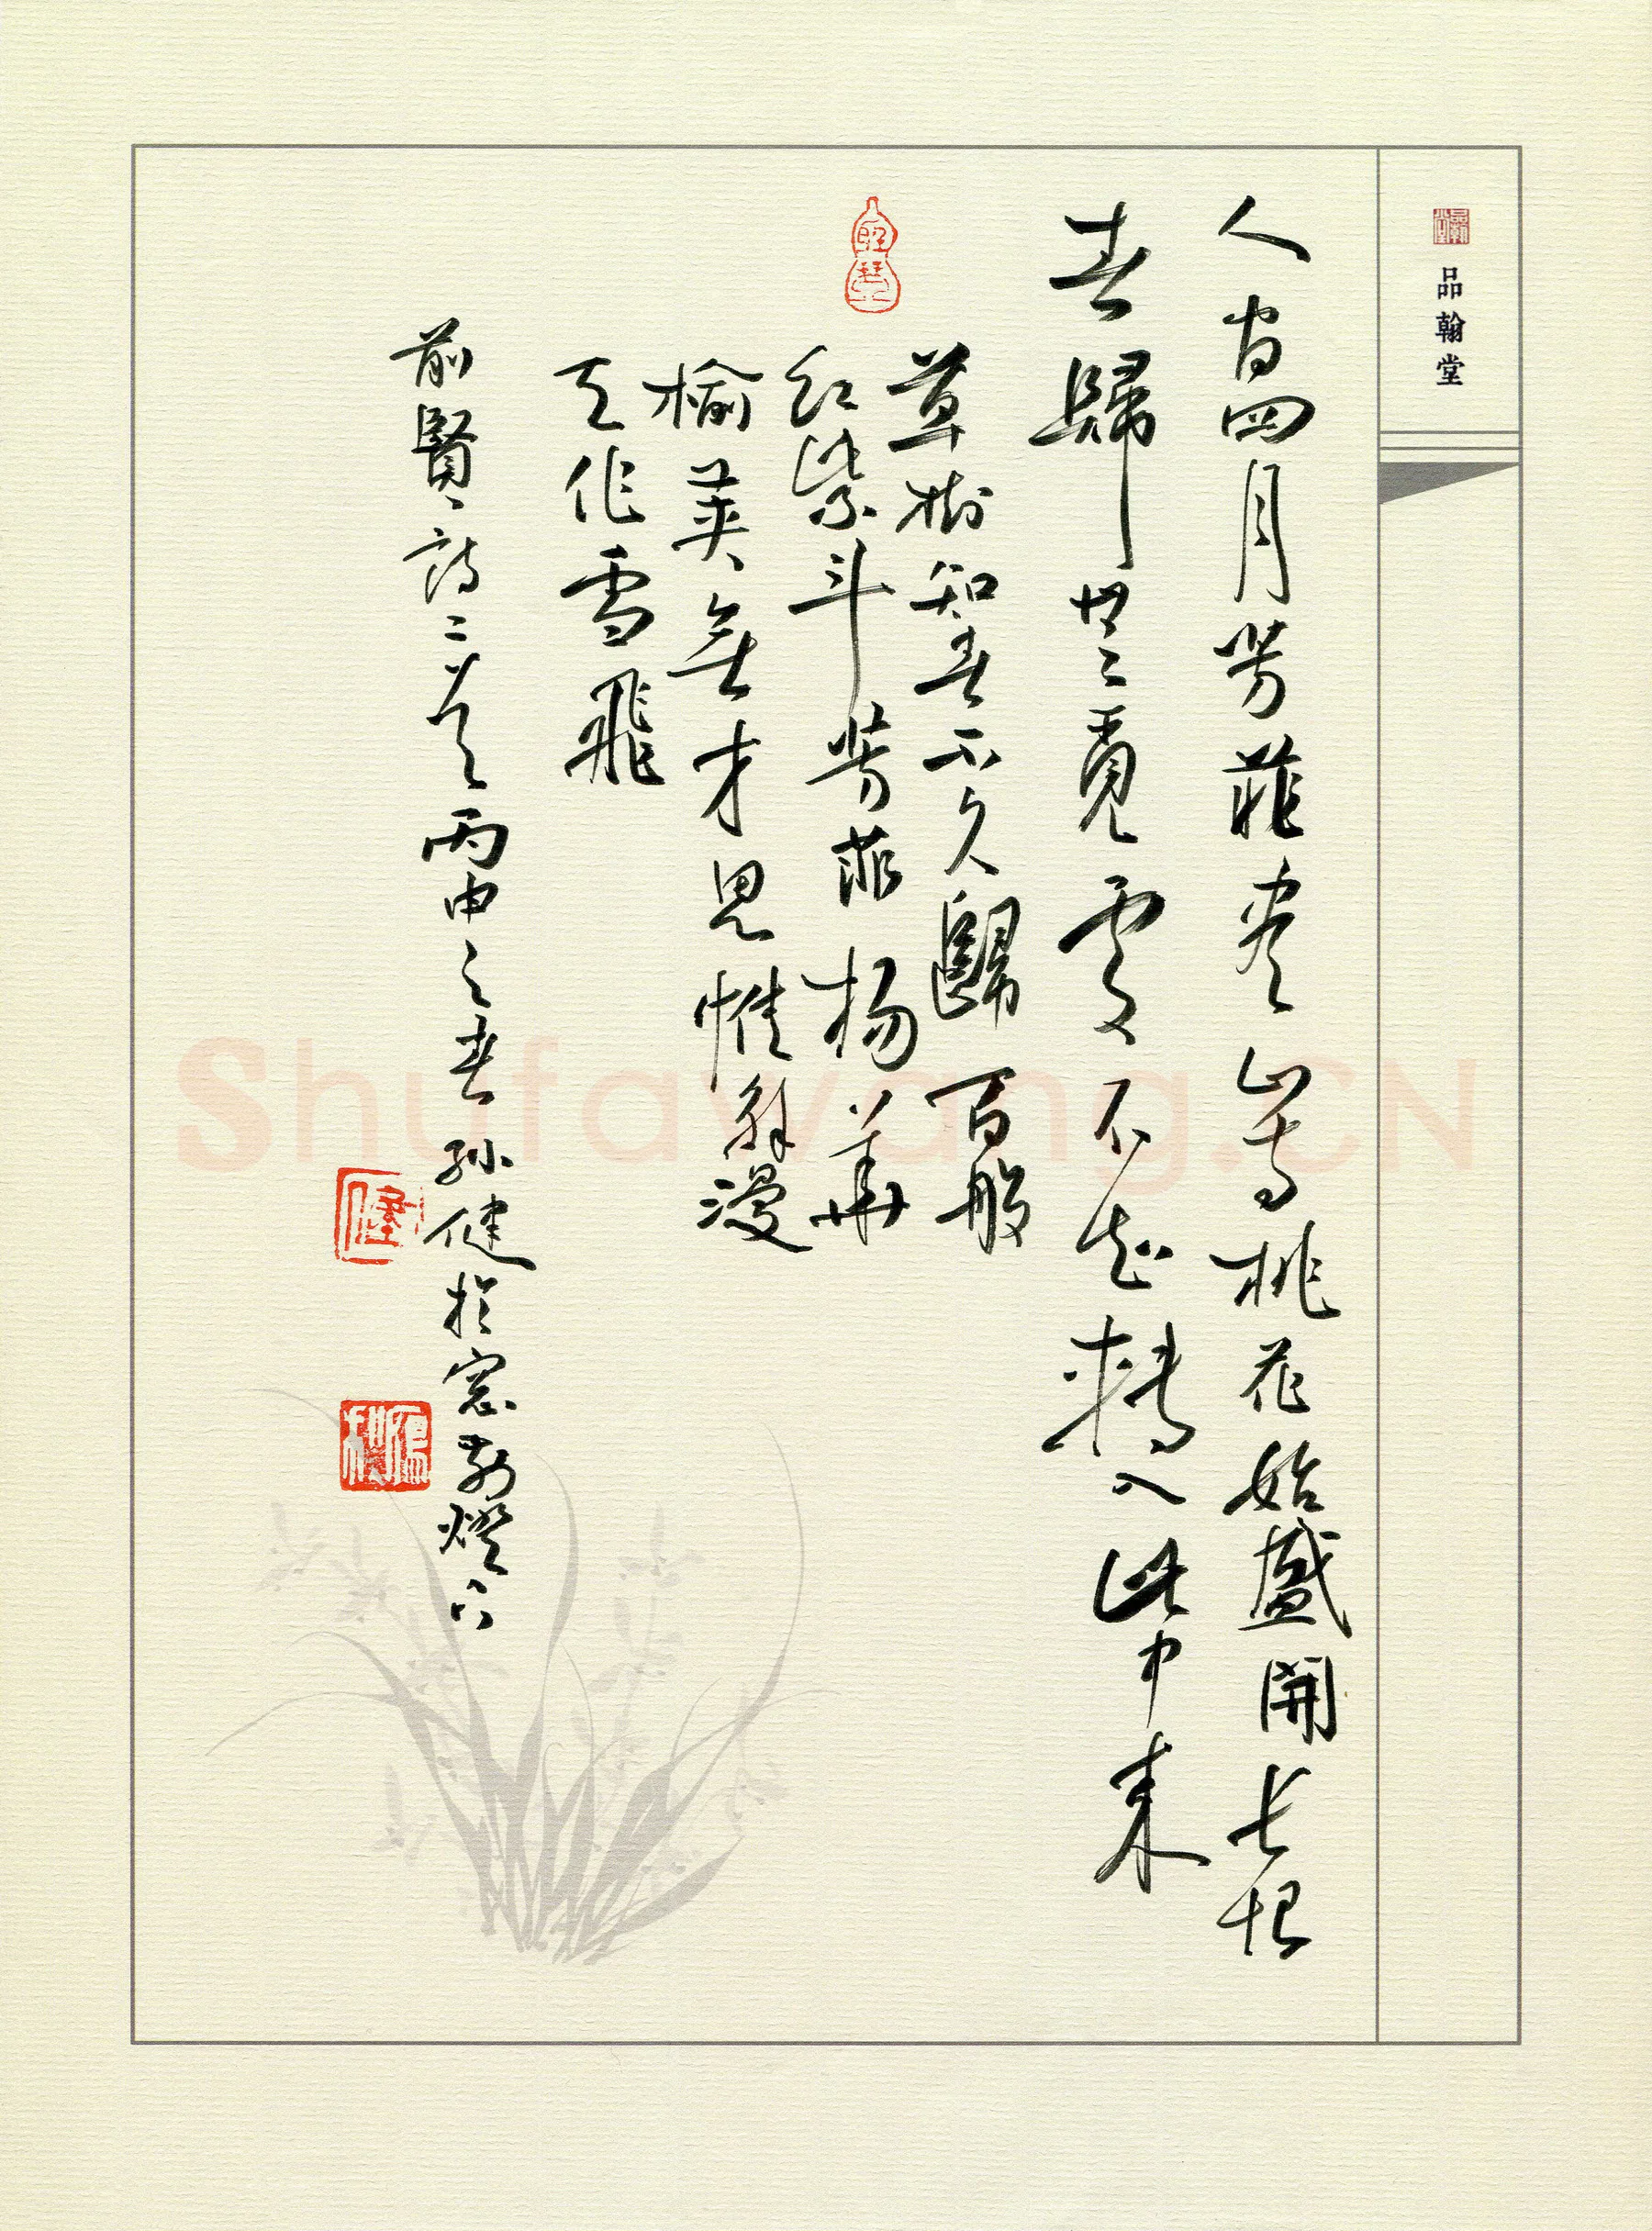 品翰堂
人間四月芳菲盡山寺桃花始盛開長恨
春歸無覓處不知轉入此中來
草樹知春不久歸百般
紅紫斗芳菲楊華
榆莢無才思惟解漫
天作雪飛
前賢詩二首丙申之春孫健於窓前燈下
Shufawang.CN